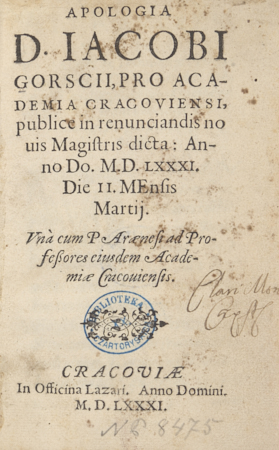 APOLOGIA
D. IACOBI
GORSCII, PRO ACA-
DEMIA CRACOVIENSI,
publice in renunciandis no
uis Magistris dicta: An-
no Do. M.D. LXXXI.
Die II. MEnsis
Martij.
Vnà cum P Arænesi ad Pro-
fessores eiusdem Acade-
miæ Cracouiensis.
Clari Mon
BIBLIOTEKA
CZARTORYS
CRACOVIÆ
In Officina Lazari. Anno Domini.
M. D. LXXXI.
No 8475